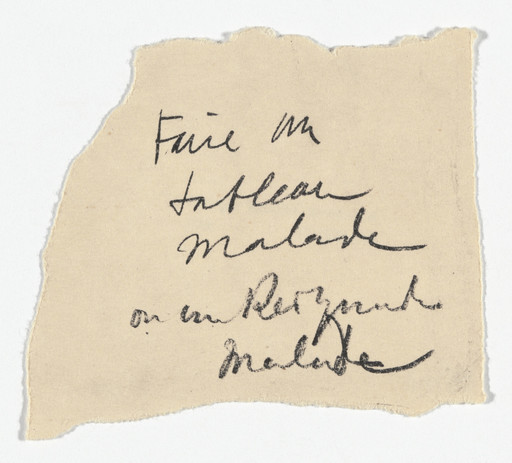 Faire un
tableau
malade
ou un Readymade
malade